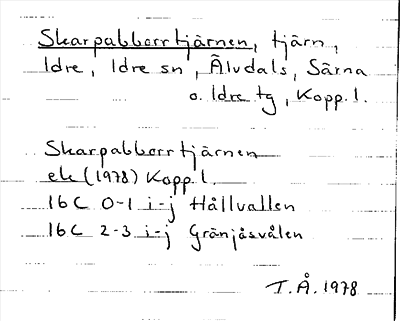 Skarpabborrtjärnen, tjärn,
Idre, Idre sn, Älvdals, Särna
o. Idre tg, Kopp. l.
Skarpabborrtjärnen
ek (1978) Kopp l.
16C 0-1 i-j Hållvallen
16C 2-3 i-j Gränjåsvålen
T.Å. 1978